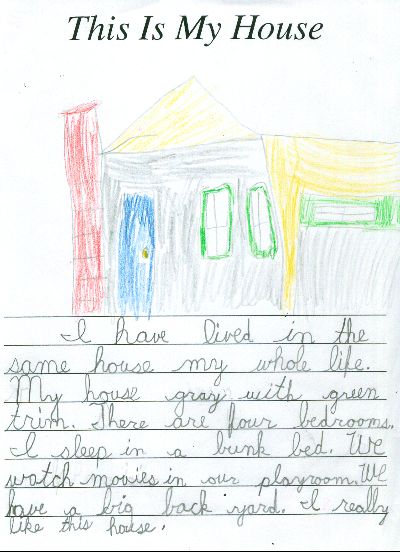 This Is My House
I have lived in the
same house my whole life.
My house gray with green
trim. There are four bedrooms.
I sleep in a bunk bed. We
watch movies in our playroom. We
have a big back yard. I really
like this house.